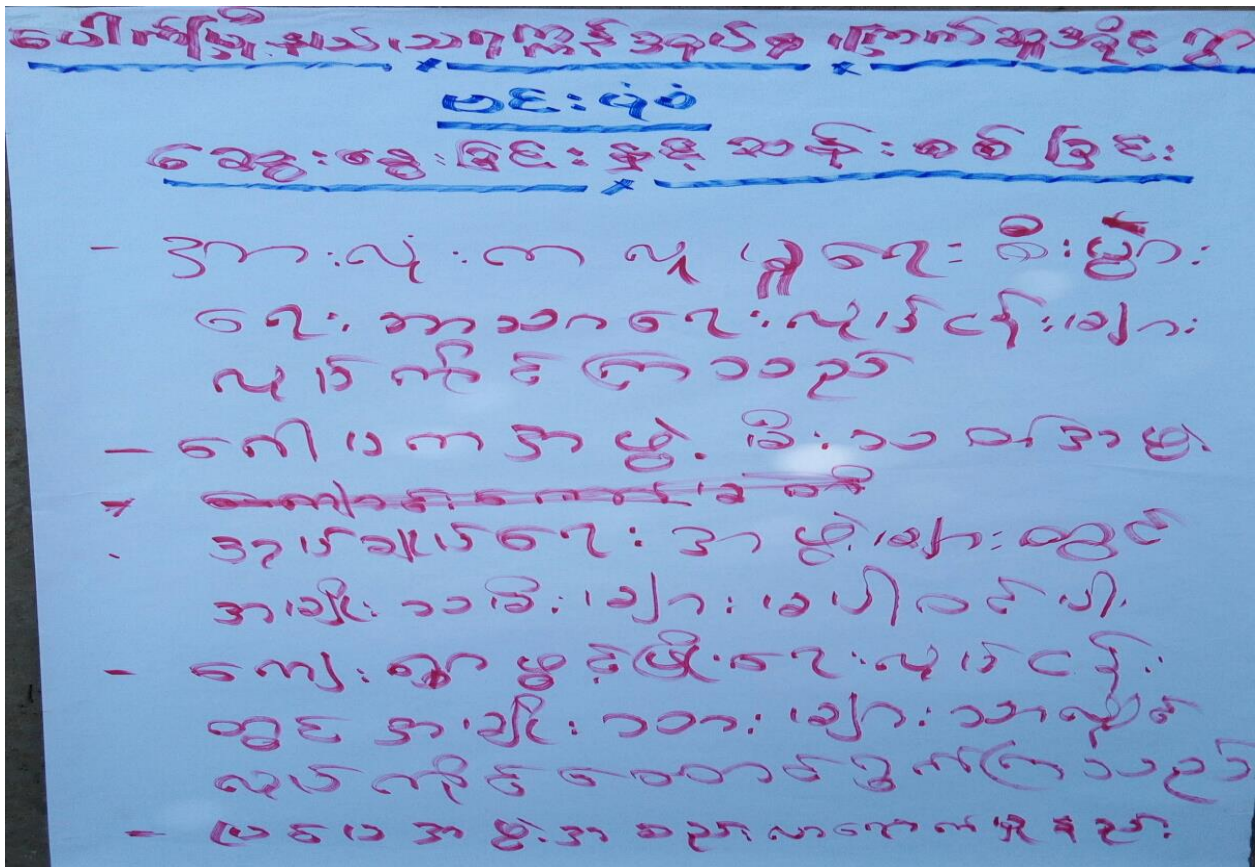 ပေါက်မြို့နယ်၊ သရက္ကန်အုပ်စု၊ ကြောက်ဆူအိုင် ရွာ
ဗင်းပုံစံ
ဆွေးနွေးခြင်းနှင့် ဆန်းစစ်ခြင်း
- အားလုံးက လူမှုရေး စီးပွား
ရေး၊ ဘာသာရေးလုပ်ငန်းများ
လုပ်ကိုင်ကြသည်
- ဂေါပကအဖွဲ့ မီးသတ်အဖွဲ့
အုပ်ချုပ်ရေးအဖွဲ့များတွင်
အမျိုးသမီးများမပါဝင်ပါ
- ကျေးရွာဖွံ့ဖြိုးရေးလုပ်ငန်း
တွင် အမျိုးသားများသာလျှင်
လုပ်ကိုင်ဆောင်ရွက်ကြသည်
- ပြင်ပအဖွဲ့အစည်းလာရောက်မှုနည်း